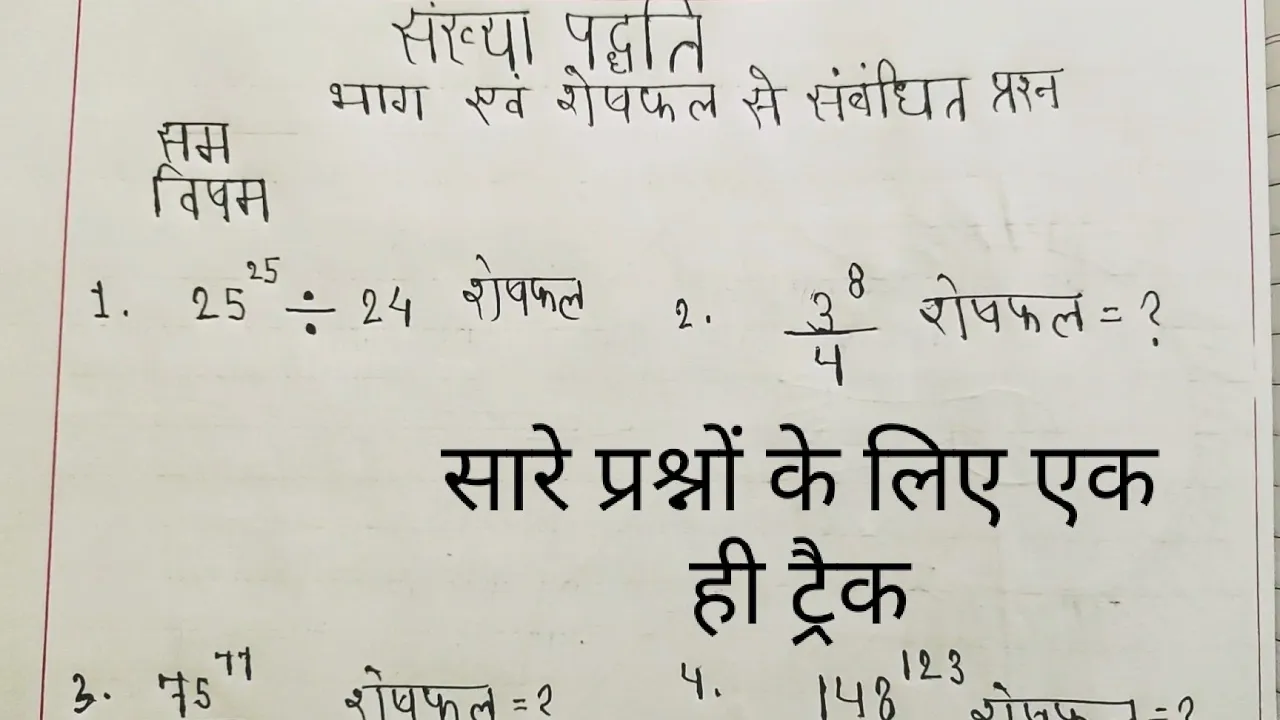 संख्या पद्धति
भाग एवं शेषफल से संबंधित प्रश्न
सम
विषम
1. 25^25 ÷ 24 शेषफल
2. 3^8/4 शेषफल = ?
सारे प्रश्नों के लिए एक
ही ट्रैक
3. 75^77 शेषफल = ?
4. 148^123 शेषफल = ?